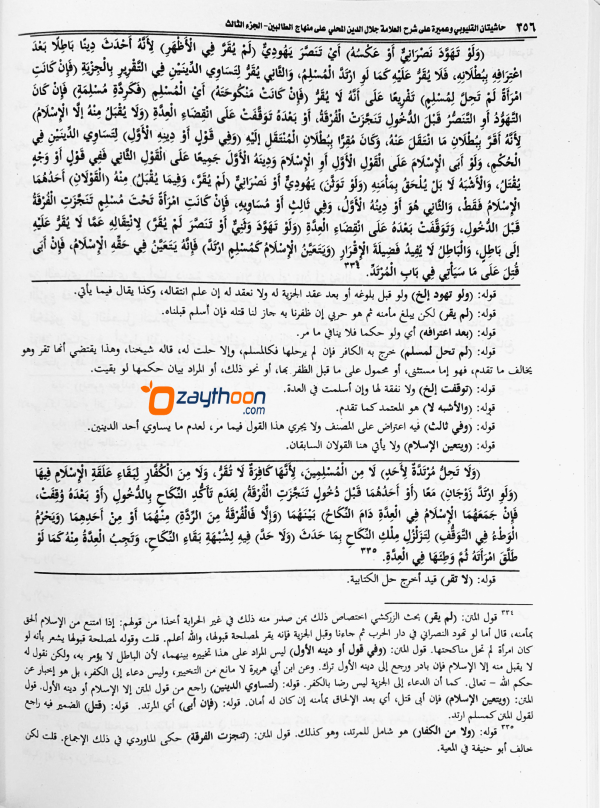 ٣٥٦ حاشيتان القليوبي وعميرة على شرح العلامة جلال الدين المحلي على منهاج الطالبين- الجزء الثالث
(وَلَوْ تَهَوَّدَ نَصْرَانِيٌّ أَوْ عَكْسُهُ) أَيْ تَنَصَّرَ يَهُودِيٌّ (لَمْ يُقَرَّ فِي الْأَظْهَرِ) لِأَنَّهُ أَحْدَثَ دِينًا بَاطِلًا بَعْدَ
اعْتِرَافِهِ بِبُطْلَانِهِ، فَلَا يُقَرُّ عَلَيْهِ كَمَا لَوِ ارْتَدَّ الْمُسْلِمُ، وَالثَّانِي يُقَرُّ لِتَسَاوِي الدِّينَيْنِ فِي التَّقْرِيرِ بِالْجِزْيَةِ (فَإِنْ كَانَتْ
امْرَأَةً لَمْ تَحِلَّ لِمُسْلِمٍ) تَفْرِيعًا عَلَى أَنَّهُ لَا يُقَرُّ (فَإِنْ كَانَتْ مَنْكُوحَتَهُ) أَيْ الْمُسْلِمِ (فَكَرِدَّةِ مُسْلِمَةٍ) فَإِنْ كَانَ
التَّهَوُّدُ أَوِ التَّنَصُّرُ قَبْلَ الدُّخُولِ تَنَجَّزَتْ الْفُرْقَةُ، أَوْ بَعْدَهُ تَوَقَّفَتْ عَلَى انْقِضَاءِ الْعِدَّةِ (وَلَا يُقْبَلُ مِنْهُ إلَّا الْإِسْلَامُ)
لِأَنَّهُ أَقَرَّ بِبُطْلَانِ مَا انْتَقَلَ عَنْهُ، وَكَانَ مُقِرًّا بِبُطْلَانِ الْمُنْتَقَلِ إلَيْهِ (وَفِي قَوْلٍ أَوْ دِينِهِ الْأَوَّلِ) لِتَسَاوِي الدِّينَيْنِ فِي
الْحُكْمِ، وَلَوْ أَبَى الْإِسْلَامَ عَلَى الْقَوْلِ الْأَوَّلِ أَوِ الْإِسْلَامَ وَدِينَهُ الْأَوَّلَ جَمِيعًا عَلَى الْقَوْلِ الثَّانِي فَفِي قَوْلٍ أَوْ وَجْهٍ
يُقْتَلُ، وَالْأَشْبَهُ لَا بَلْ يُلْحَقُ بِمَأْمَنِهِ (وَلَوْ تَوَثَّنَ) يَهُودِيٌّ أَوْ نَصْرَانِيٌّ (لَمْ يُقَرَّ، وَفِيمَا يُقْبَلُ) مِنْهُ (الْقَوْلَانِ) أَحَدُهُمَا
الْإِسْلَامُ فَقَطْ، وَالثَّانِي هُوَ أَوْ دِينُهُ الْأَوَّلُ، وَفِي ثَالِثٍ أَوْ مُسَاوِيهِ، فَإِنْ كَانَتِ امْرَأَةً تَحْتَ مُسْلِمٍ تَنَجَّزَتْ الْفُرْقَةُ
قَبْلَ الدُّخُولِ، وَتَوَقَّفَتْ بَعْدَهُ عَلَى انْقِضَاءِ الْعِدَّةِ (وَلَوْ تَهَوَّدَ وَثَنِيٌّ أَوْ تَنَصَّرَ لَمْ يُقَرَّ) لِانْتِقَالِهِ عَمَّا لَا يُقَرُّ عَلَيْهِ
إلَى بَاطِلٍ، وَالْبَاطِلُ لَا يُفِيدُ فَضِيلَةَ الْإِقْرَارِ (وَيَتَعَيَّنُ الْإِسْلَامُ كَمُسْلِمٍ ارْتَدَّ) فَإِنَّهُ يَتَعَيَّنُ فِي حَقِّهِ الْإِسْلَامُ، فَإِنْ أَبَى
قُتِلَ عَلَى مَا سَيَأْتِي فِي بَابِ الْمُرْتَدِّ.٣٣٤
قوله: (ولو تهود إلخ) ولو قبل بلوغه أو بعد عقد الجزية له ولا نعقد له إن علم انتقاله، وكذا يقال فيما يأتي.
قوله: (لم يقر) لكن يبلغ مأمنه ثم هو حربي إن ظفرنا به جاز لنا قتله فإن أسلم قبلناه.
قوله: (بعد اعترافه) أي ولو حكما فلا ينافي ما مر.
قوله: (لم تحل لمسلم) خرج به الكافر فإن لم يرحلها فكالمسلم، وإلا حلت له، قاله شيخنا، وهذا يقتضي أنها تقر وهو
يخالف ما تقدم، فهو إما مستثنى، أو محمول على ما قبل الظفر بها، أو نحو ذلك، أو المراد بيان حكمها لو بقيت.
قوله: (توقفت إلخ) ولا نفقة لها وإن أسلمت في العدة.
قوله: (والأشبه لا) هو المعتمد كما تقدم.
قوله: (وفي ثالث) فيه اعتراض على المصنف ولا يجري هذا القول فيما مر، لعدم ما يساوي أحد الدينين.
قوله: (ويتعين الإسلام) ولا يأتي هنا القولان السابقان.
ozaythoon
.com
(وَلَا تَحِلُّ مُرْتَدَّةٌ لِأَحَدٍ) لَا مِنَ الْمُسْلِمِينَ، لِأَنَّهَا كَافِرَةٌ لَا تُقَرُّ، وَلَا مِنَ الْكُفَّارِ لِبَقَاءِ عَلَقَةِ الْإِسْلَامِ فِيهَا
(وَلَوِ ارْتَدَّ زَوْجَانِ) مَعًا (أَوْ أَحَدُهُمَا قَبْلَ دُخُولٍ تَنَجَّزَتْ الْفُرْقَةُ) لِعَدَمِ تَأَكُّدِ النِّكَاحِ بِالدُّخُولِ (أَوْ بَعْدَهُ وُقِفَتْ،
فَإِنْ جَمَعَهُمَا الْإِسْلَامُ فِي الْعِدَّةِ دَامَ النِّكَاحُ) بَيْنَهُمَا (وَإِلَّا فَالْفُرْقَةُ مِنَ الرِّدَّةِ) مِنْهُمَا أَوْ مِنْ أَحَدِهِمَا (وَيَحْرُمُ
الْوَطْءُ فِي التَّوَقُّفِ) لِتَزَلْزُلِ مِلْكِ النِّكَاحِ بِمَا حَدَثَ (وَلَا حَدَّ) فِيهِ لِشُبْهَةِ بَقَاءِ النِّكَاحِ، وَتَجِبُ الْعِدَّةُ مِنْهُ كَمَا لَوْ
طَلَّقَ امْرَأَتَهُ ثُمَّ وَطِئَهَا فِي الْعِدَّةِ. ٣٣٥
قوله: (لا تقر) قيد أخرج حل الكتابية.
٣٣٤ قول المتن: (لم يقر) بحث الزركشي اختصاص ذلك بمن صدر منه ذلك في غير الحرابة أخذا من قولهم: إذا امتنع من الإسلام ألحق
بمأمنه، قال أما لو تهود النصراني في دار الحرب ثم جاءنا وقبل الجزية فإنه يقر لمصلحة قبولها، والله أعلم. قلت وقوله لمصلحة قبولها يشعر بأنه لو
كان امرأة لم تحل مناكحتها. قول المتن: (وفي قول أو دينه الأول) ليس المراد على هذا تخييره بينهما، لأن الباطل لا يؤمر به، ولكن نقول له
لا يقبل منه إلا الإسلام فإن بادر ورجع إلى دينه الأول ترك. وعن ابن أبي هريرة لا مانع من التخيير، وليس دعاء إلى الكفر، بل هو إخبار عن
حكم الله – تعالى. كما أن الدعاء إلى الجزية ليس رضا بالكفر. قوله: (لتساوي الدينين) راجع من قول المتن إلا الإسلام أو دينه الأول. قول
المتن: (ويتعين الإسلام) فإن أبى قتل، أي بعد الإلحاق بمأمنه إن كان له أمان. قوله: (فإن أبى) أي المرتد. قوله: (قتل) الضمير فيه راجع
لقول المتن كمسلم ارتد.
٣٣٥ قوله: (ولا من الكفار) هو شامل للمرتد، وهو كذلك. قول المتن: (تنجزت الفرقة) حكى الماوردي في ذلك الإجماع. قلت لكن
خالف أبو حنيفة في المعية.